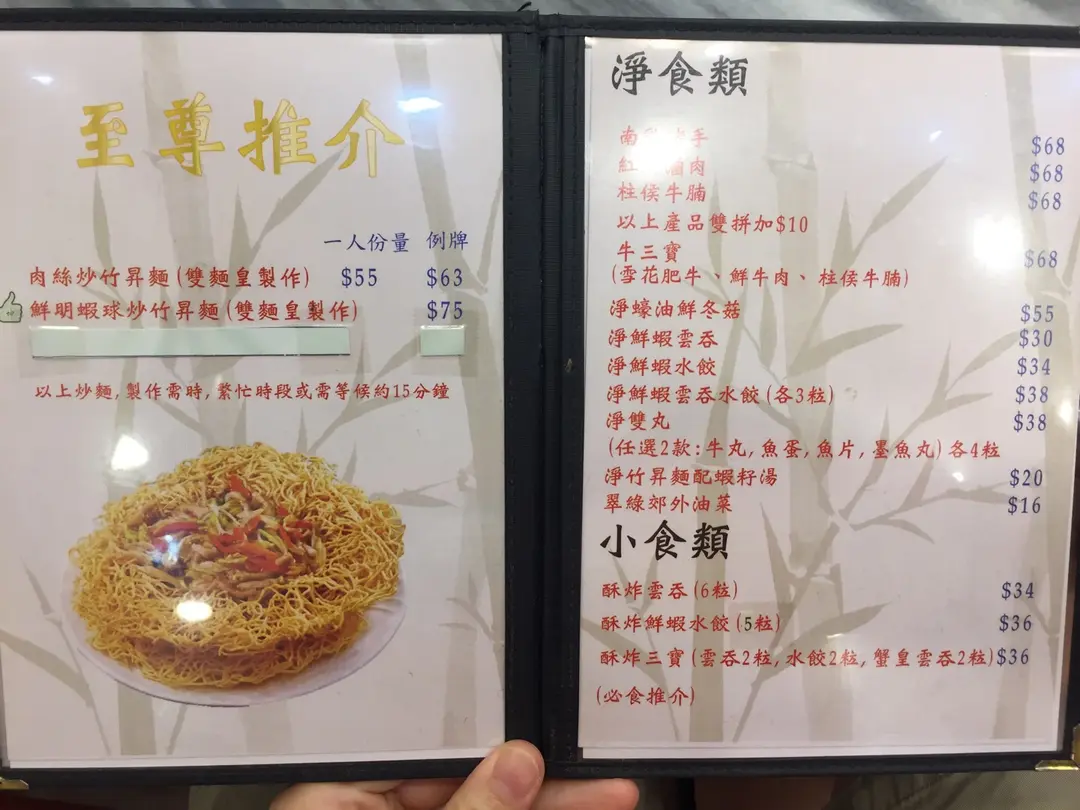 至尊推介
一人份量 例牌
肉絲炒竹昇麵(雙麵皇製作) $55 $63
鮮明蝦球炒竹昇麵(雙麵皇製作) $75
以上炒麵,製作需時,繁忙時段或需等候約15分鐘
淨食類
南 手 $68
紅 滷肉 $68
柱侯牛腩 $68
以上產品雙拼加$10
牛三寶 $68
(雪花肥牛、鮮牛肉、柱侯牛腩)
淨蠔油鮮冬菇 $55
淨鮮蝦雲吞 $30
淨鮮蝦水餃 $34
淨鮮蝦雲吞水餃(各3粒) $38
淨雙丸 $38
(任選2款:牛丸,魚蛋,魚片,墨魚丸)各4粒
淨竹昇麵配蝦籽湯 $20
翠綠郊外油菜 $16
小食類
酥炸雲吞(6粒) $34
酥炸鮮蝦水餃(5粒) $36
酥炸三寶(雲吞2粒,水餃2粒,蟹皇雲吞2粒)$36
(必食推介)